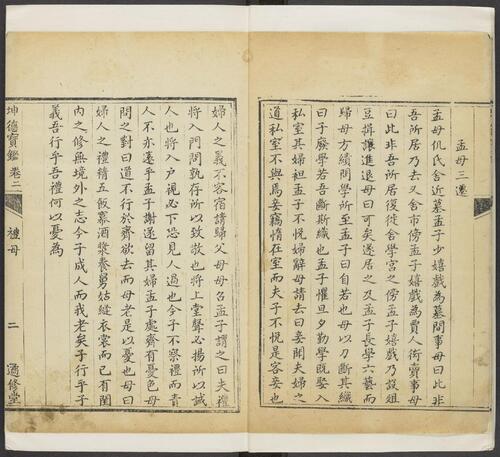 孟母三遷
孟母仉氏舍近墓孟子少嬉戲為墓間事母曰此非
吾所居乃去又舍市傍孟子嬉戲為賈人衒賣事母
曰此非吾所居復徙舍學宮之傍孟子嬉戲乃設俎
豆揖讓進退母曰可矣遂居之及孟子長學六藝而
歸母方績問學所至孟子曰自若也母以刀斷其織
曰子廢學若吾斷斯織也孟子懼旦夕勤學既娶入
私室其婦袒孟子不悅婦辭母請去曰妾聞夫婦之
道私室不與焉妾竊惰在室而夫子不悅是客妾也
婦人之義不容宿請歸父母母召孟子謂之曰夫禮
將入門問孰存所以致敬也將上堂聲必揚所以誡
人也將入戶視必下恐見人過也今子不察禮而責
人不亦遠乎孟子謝遂留其婦孟子處齊有憂色母
問之對曰道不行於齊欲去而母老是以憂也母曰
婦人之禮精五飯羃酒漿養舅姑縫衣裳而已有閨
內之修無境外之志今子成人而我老矣子行乎子
義吾行乎吾禮何以憂為
坤德寶鑑 卷二 母 二 適修堂